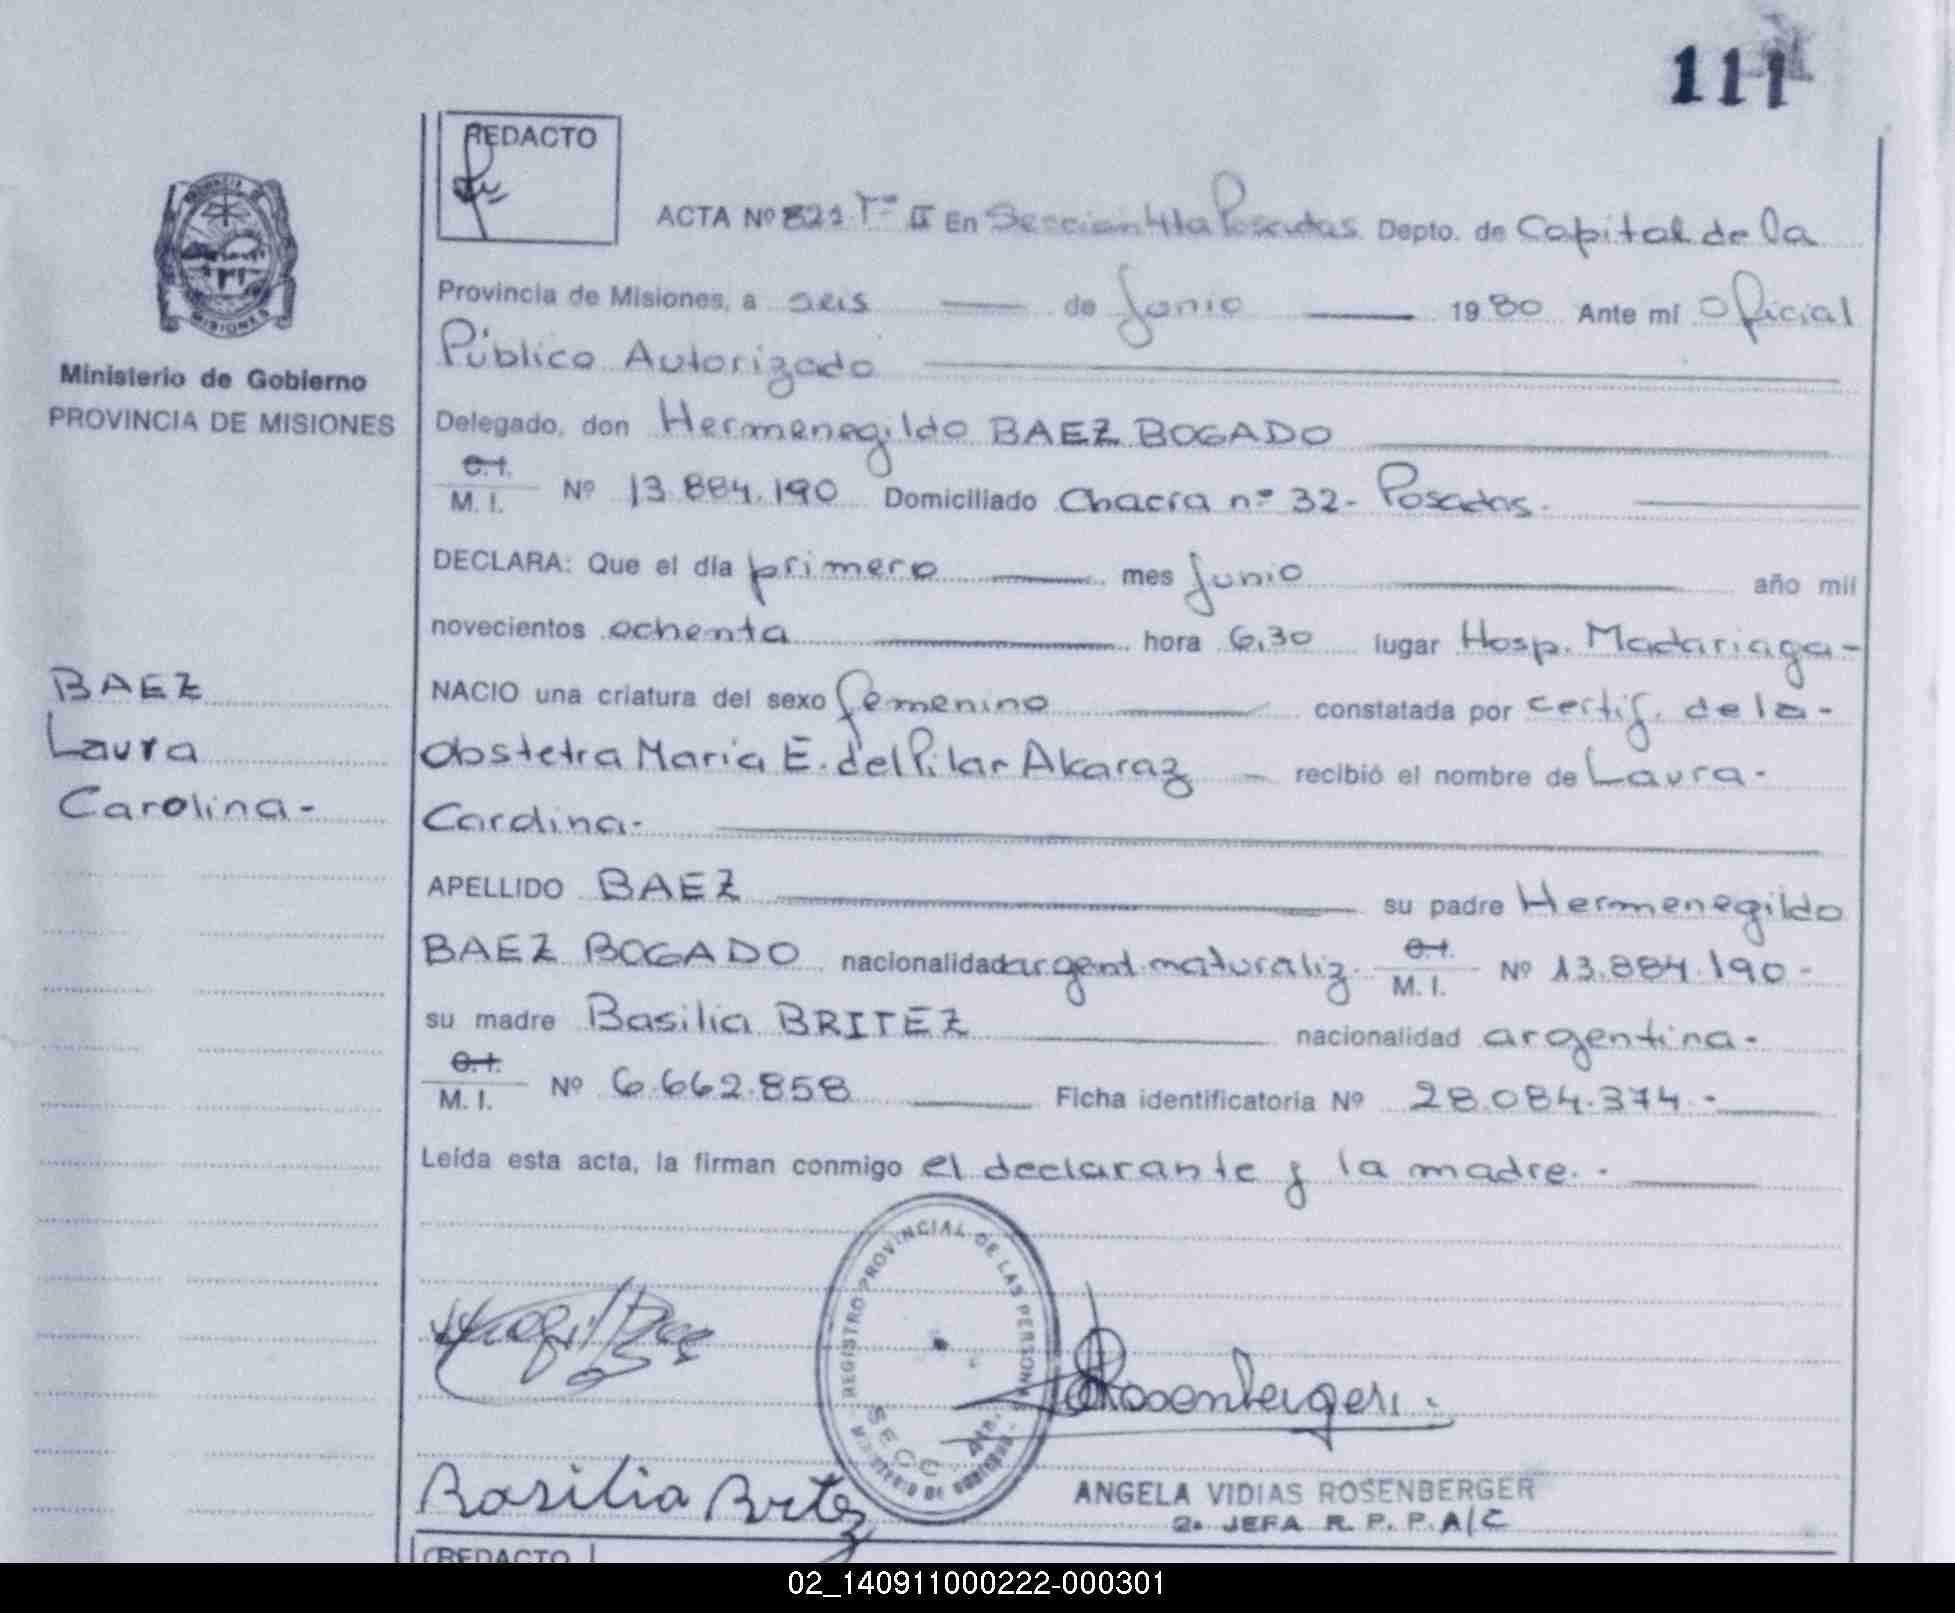 111
REDACTO
ACTA Nº 821 Tº II En Sección 4ta Posadas Depto. de Capital de la
Provincia de Misiones, a seis de Junio 1980 Ante mí Oficial
Público Autorizado
Delegado, don Hermenegildo BAEZ BOGADO
C.I.
M. I. Nº 13.884.190 Domiciliado Chacra nº 32- Posadas.
DECLARA: Que el día primero mes Junio año mil
novecientos ochenta hora 6,30 lugar Hosp. Madariaga-
NACIO una criatura del sexo femenino constatada por certif. de la-
obstetra Maria E. del Pilar Alcaraz recibió el nombre de Laura-
Carolina-
APELLIDO BAEZ su padre Hermenegildo
BAEZ BOGADO nacionalidad argent. naturaliz. C.I.
M. I. Nº 13.884.190-
su madre Basilia BRITEZ nacionalidad argentina-
C.I.
M. I. Nº 6.662.858 Ficha identificatoria Nº 28.084.374.-
Leída esta acta, la firman conmigo el declarante y la madre.-
PROVINCIA DE
MISIONES
Ministerio de Gobierno
PROVINCIA DE MISIONES
BAEZ
Laura
Carolina-
REGISTRO PROVINCIAL DE LAS PERSONAS
SECC. 4ta.
MINISTERIO DE GOBIERNO
Rosenberger
Basilia Britez
ANGELA VIDIAS ROSENBERGER
2a. JEFA R. P. P. A/C
REDACTO
02_140911000222-000301